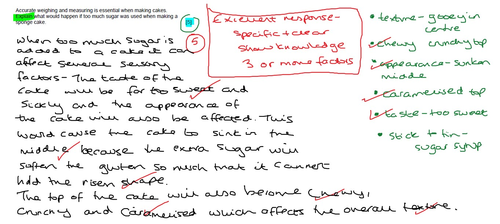 Accurate weighing and measuring is essential when making cakes.
Explain what would happen if too much sugar was used when making a
sponge cake.
[5]
5
when too much sugar is
added to a cake it can
affect several sensory
factors - The taste of the
cake will be far too sweet and
Sickly and the appearance of
the cake will also be affected. This
would cause the cake to sink in the
middle because the extra sugar will
soften the gluten so much that it cannot
hold the risen shape.
The top of the cake will also become chewy,
crunchy and caramelised which affects the overall texture.
Excellent response -
specific + clear
Shows knowledge
3 or more factors
texture - gooey in
centre
chewy crunchy top
appearance - sunken
middle
caramelised top
taste - too sweet
stick to tin -
sugar syrup